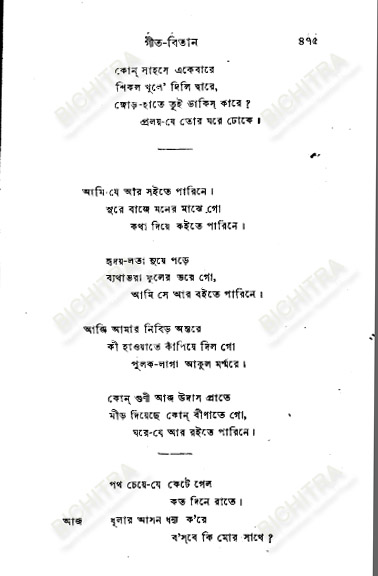 গীত-বিতান ৪৭৫
কোন্ সাহসে একেবারে
শিকল খুলে' দিলি দ্বারে,
জোড়-হাতে তুই ডাকিস্ কারে ?
প্রলয়-যে তোর ঘরে ঢোকে ।
আমি-যে আর সইতে পারিনে ।
সুরে বাজে মনের মাঝে গো
কথা দিয়ে কইতে পারিনে ।
হৃদয়-লতা নুয়ে পড়ে
ব্যথাভরা ফুলের ভরে গো,
আমি সে আর বইতে পারিনে ।
আজি আমার নিবিড় অন্তরে
কী হাওয়াতে কাঁপিয়ে দিল গো
পুলক-লাগা আকুল মর্ম্মরে ।
কোন্ গুণী আজ উদাস প্রাতে
মীড় দিয়েছে কোন্ বীণাতে গো,
ঘরে-যে আর রইতে পারিনে ।
পথ চেয়ে-যে কেটে গেল
কত দিনে রাতে ।
আজ ধূলার আসন ধন্য ক'রে
ব'সবে কি মোর সাথে ?
BICHITRA
BICHITRA
BICHITRA
BICHITRA
BICHITRA
BICHITRA